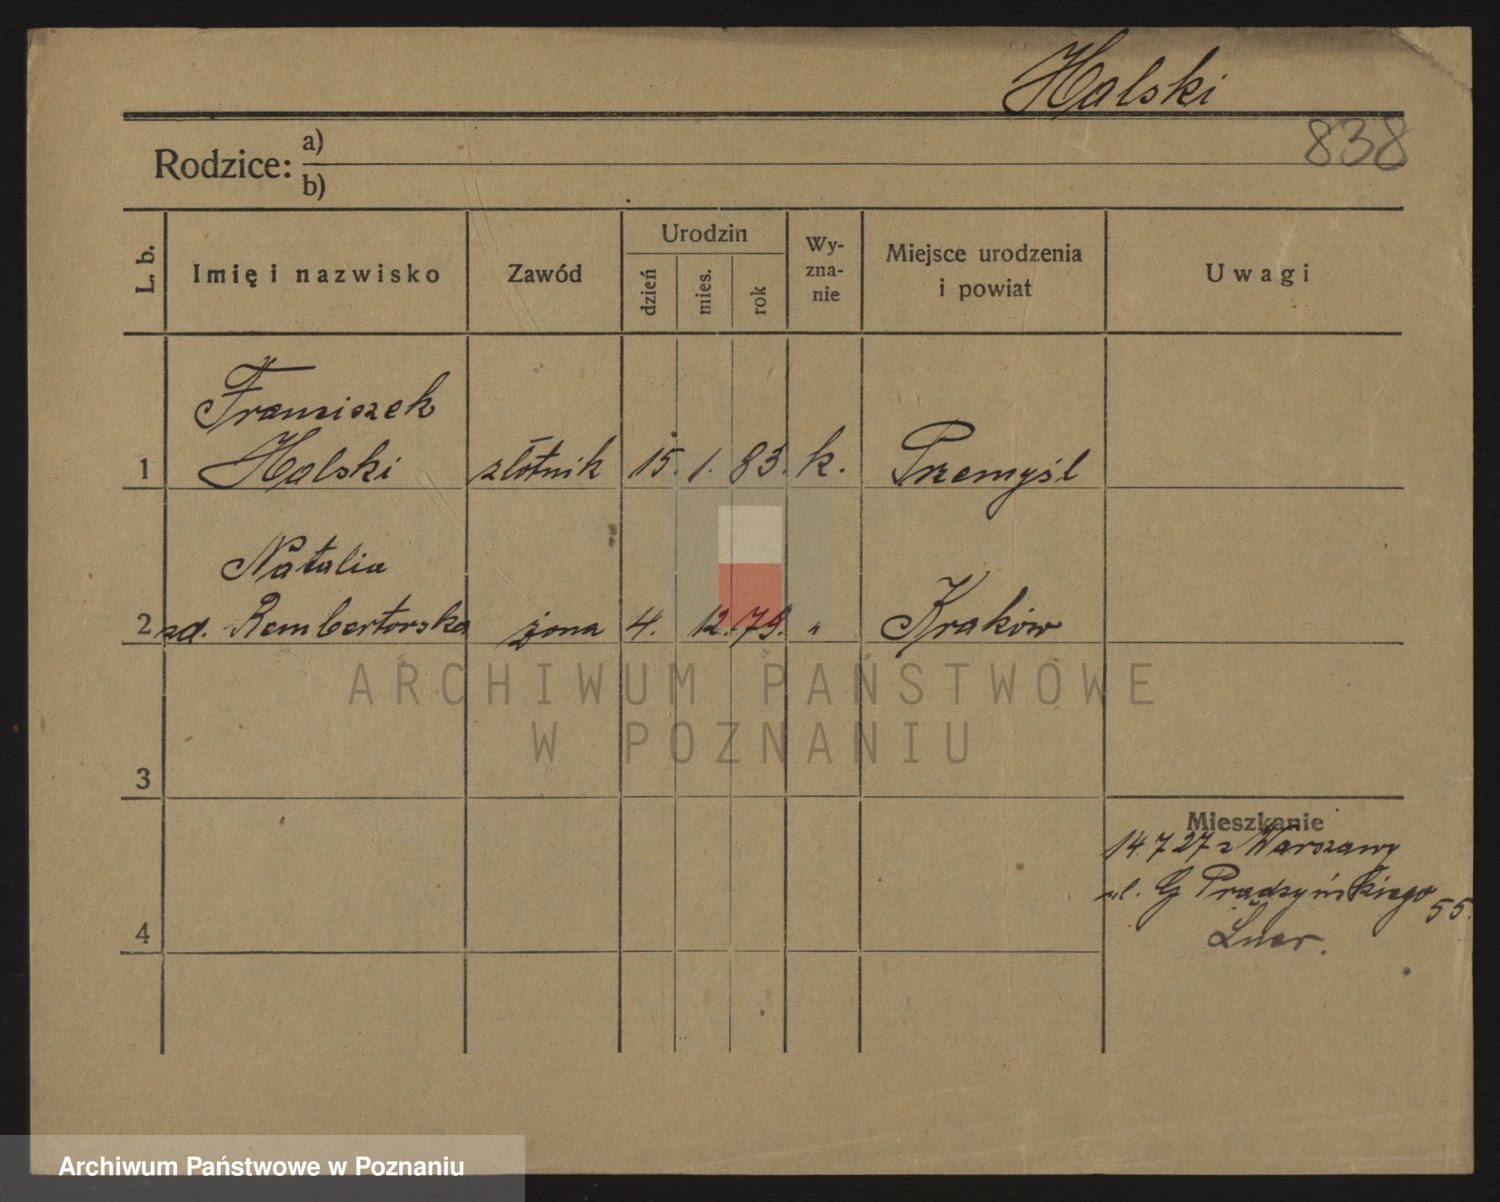 Halski
838
Rodzice: a)
b)
L. b.
Imię i nazwisko
Zawód
Urodzin
dzień
mies.
rok
Wy-
zna-
nie
Miejsce urodzenia
i powiat
Uwagi
Franciszek
1 Halski złotnik 15. 1. 83. k. Przemyśl
Natalia
2 zd. Rembertorska żona 4. 12. 79. " Kraków
ARCHIWUM PAŃSTWOWE
W POZNANIU
3
Mieszkanie
14.7 27 z Warszawy
ul. G Prądzyńskiego 55.
4
Archiwum Państwowe w Poznaniu